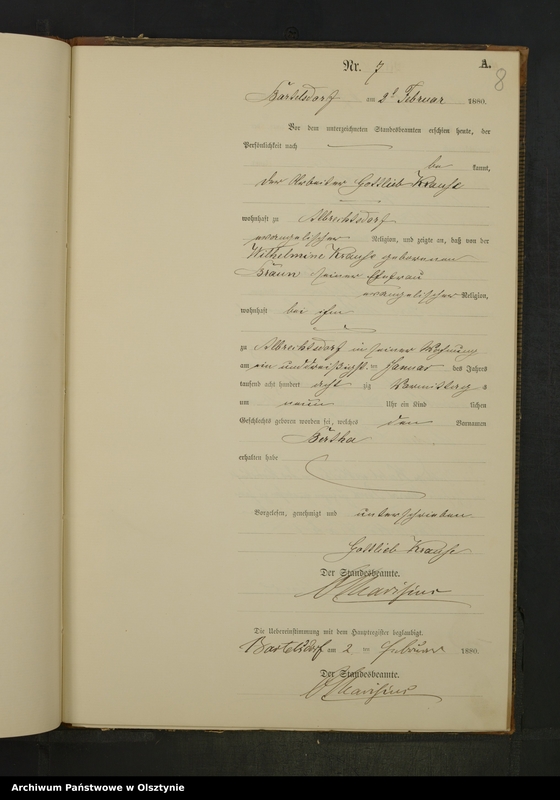 Nr. 7
A.
8
Bartelsdorf am 2t Februar 1880.
Vor dem unterzeichneten Standesbeamten erschien heute, der
Persönlichkeit nach
be kannt,
der Arbeiter Gottlieb Krause
wohnhaft zu Albrechtsdorf
evangelischer Religion, und zeigte an, daß von der
Wilhelmine Krause geborenen
Braun seiner Ehefrau
evangelischer Religion,
wohnhaft bei ihm
zu Albrechtsdorf in seiner Wohnung
am ein und dreißigst. en Januar des Jahres
tausend acht hundert acht zig Vormittag s
um neun Uhr ein Kind lichen
Geschlechts geboren worden sei, welches den Vornamen
Bertha
erhalten habe
Vorgelesen, genehmigt und unterschrieben
Gottlieb Krause
Der Standesbeamte.
Die Uebereinstimmung mit dem Hauptregister beglaubigt.
Bartelsdorf am 2 ten Februar 1880.
Der Standesbeamte.
Archiwum Państwowe w Olsztynie